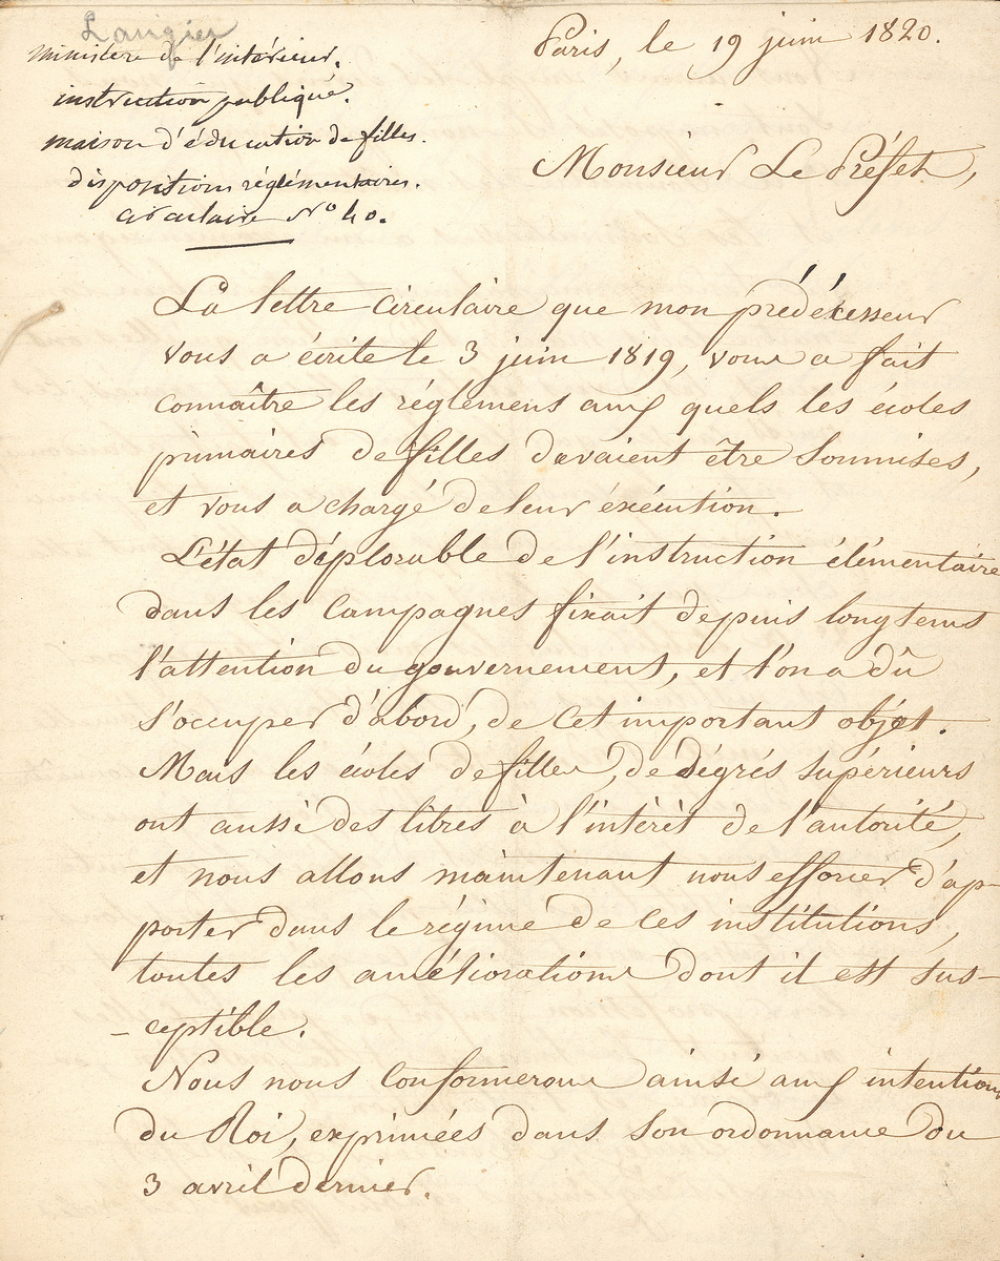 Langier
ministere de l'intérieur.
instruction publique.
maison d'éducation de filles.
dispositions réglémentaires.
circulaire N° 40.
Paris, le 19 juin 1820.
Monsieur Le Préfet,
La lettre circulaire que mon prédécesseur
vous a écrite le 3 juin 1819, vous a fait
connaître les réglemens aux quels les écoles
primaires de filles devaient être soumises,
et vous a chargé de leur éxécution.
L'état déplorable de l'instruction élémentaire
dans les campagnes fixait depuis longtems
l'attention du gouvernement, et l'on a dû
s'occuper d'abord, de cet important objet.
Mais les écoles de filles, de dégrés supérieurs
ont aussi des titres à l'intérèt de l'autorité,
et nous allons maintenant nous efforcer d'ap-
porter dans le régime de ces institutions,
toutes les améliorations dont il est sus-
-ceptible.
Nous nous conformerons ainsi aux intentions
du Roi, exprimées dans son ordonnance du
3 avril dernier.